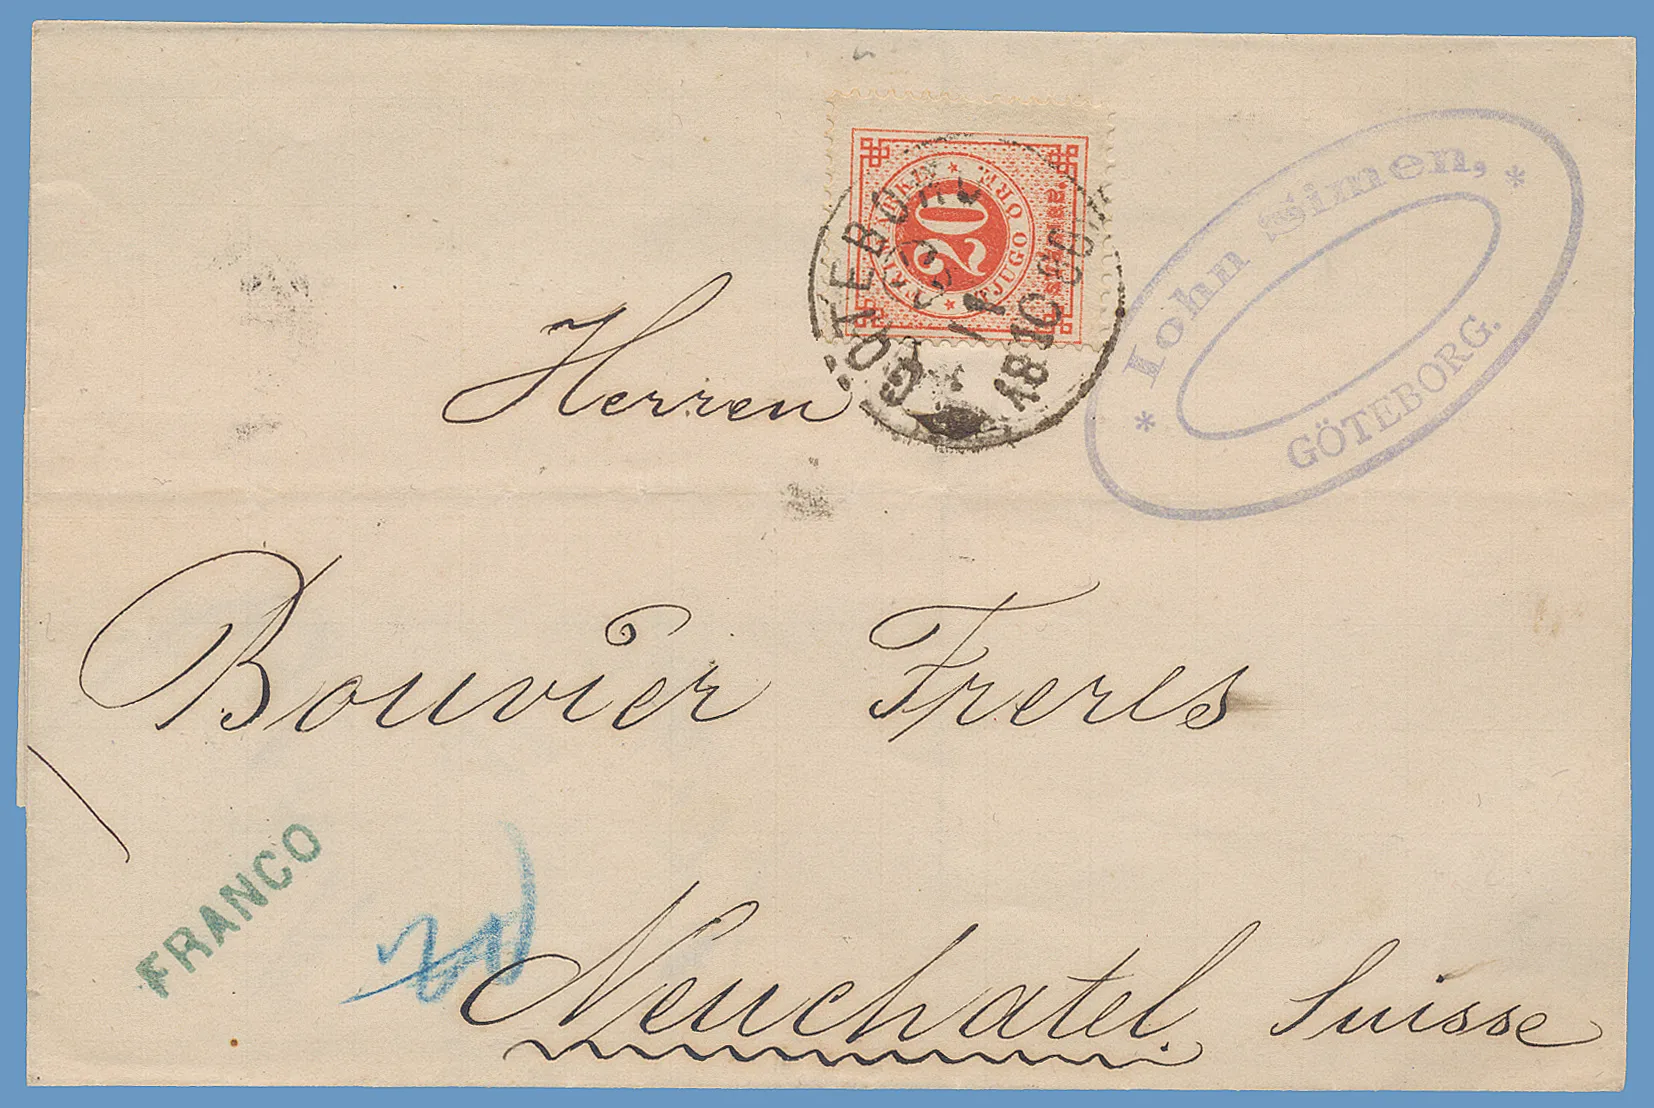 FRIMÄRKE
TJUGO ÖRE.
20
GÖTEBORG
John Simen,
GÖTEBORG.
Herren
Bouvier Freres
FRANCO
Neuchatel. Suisse